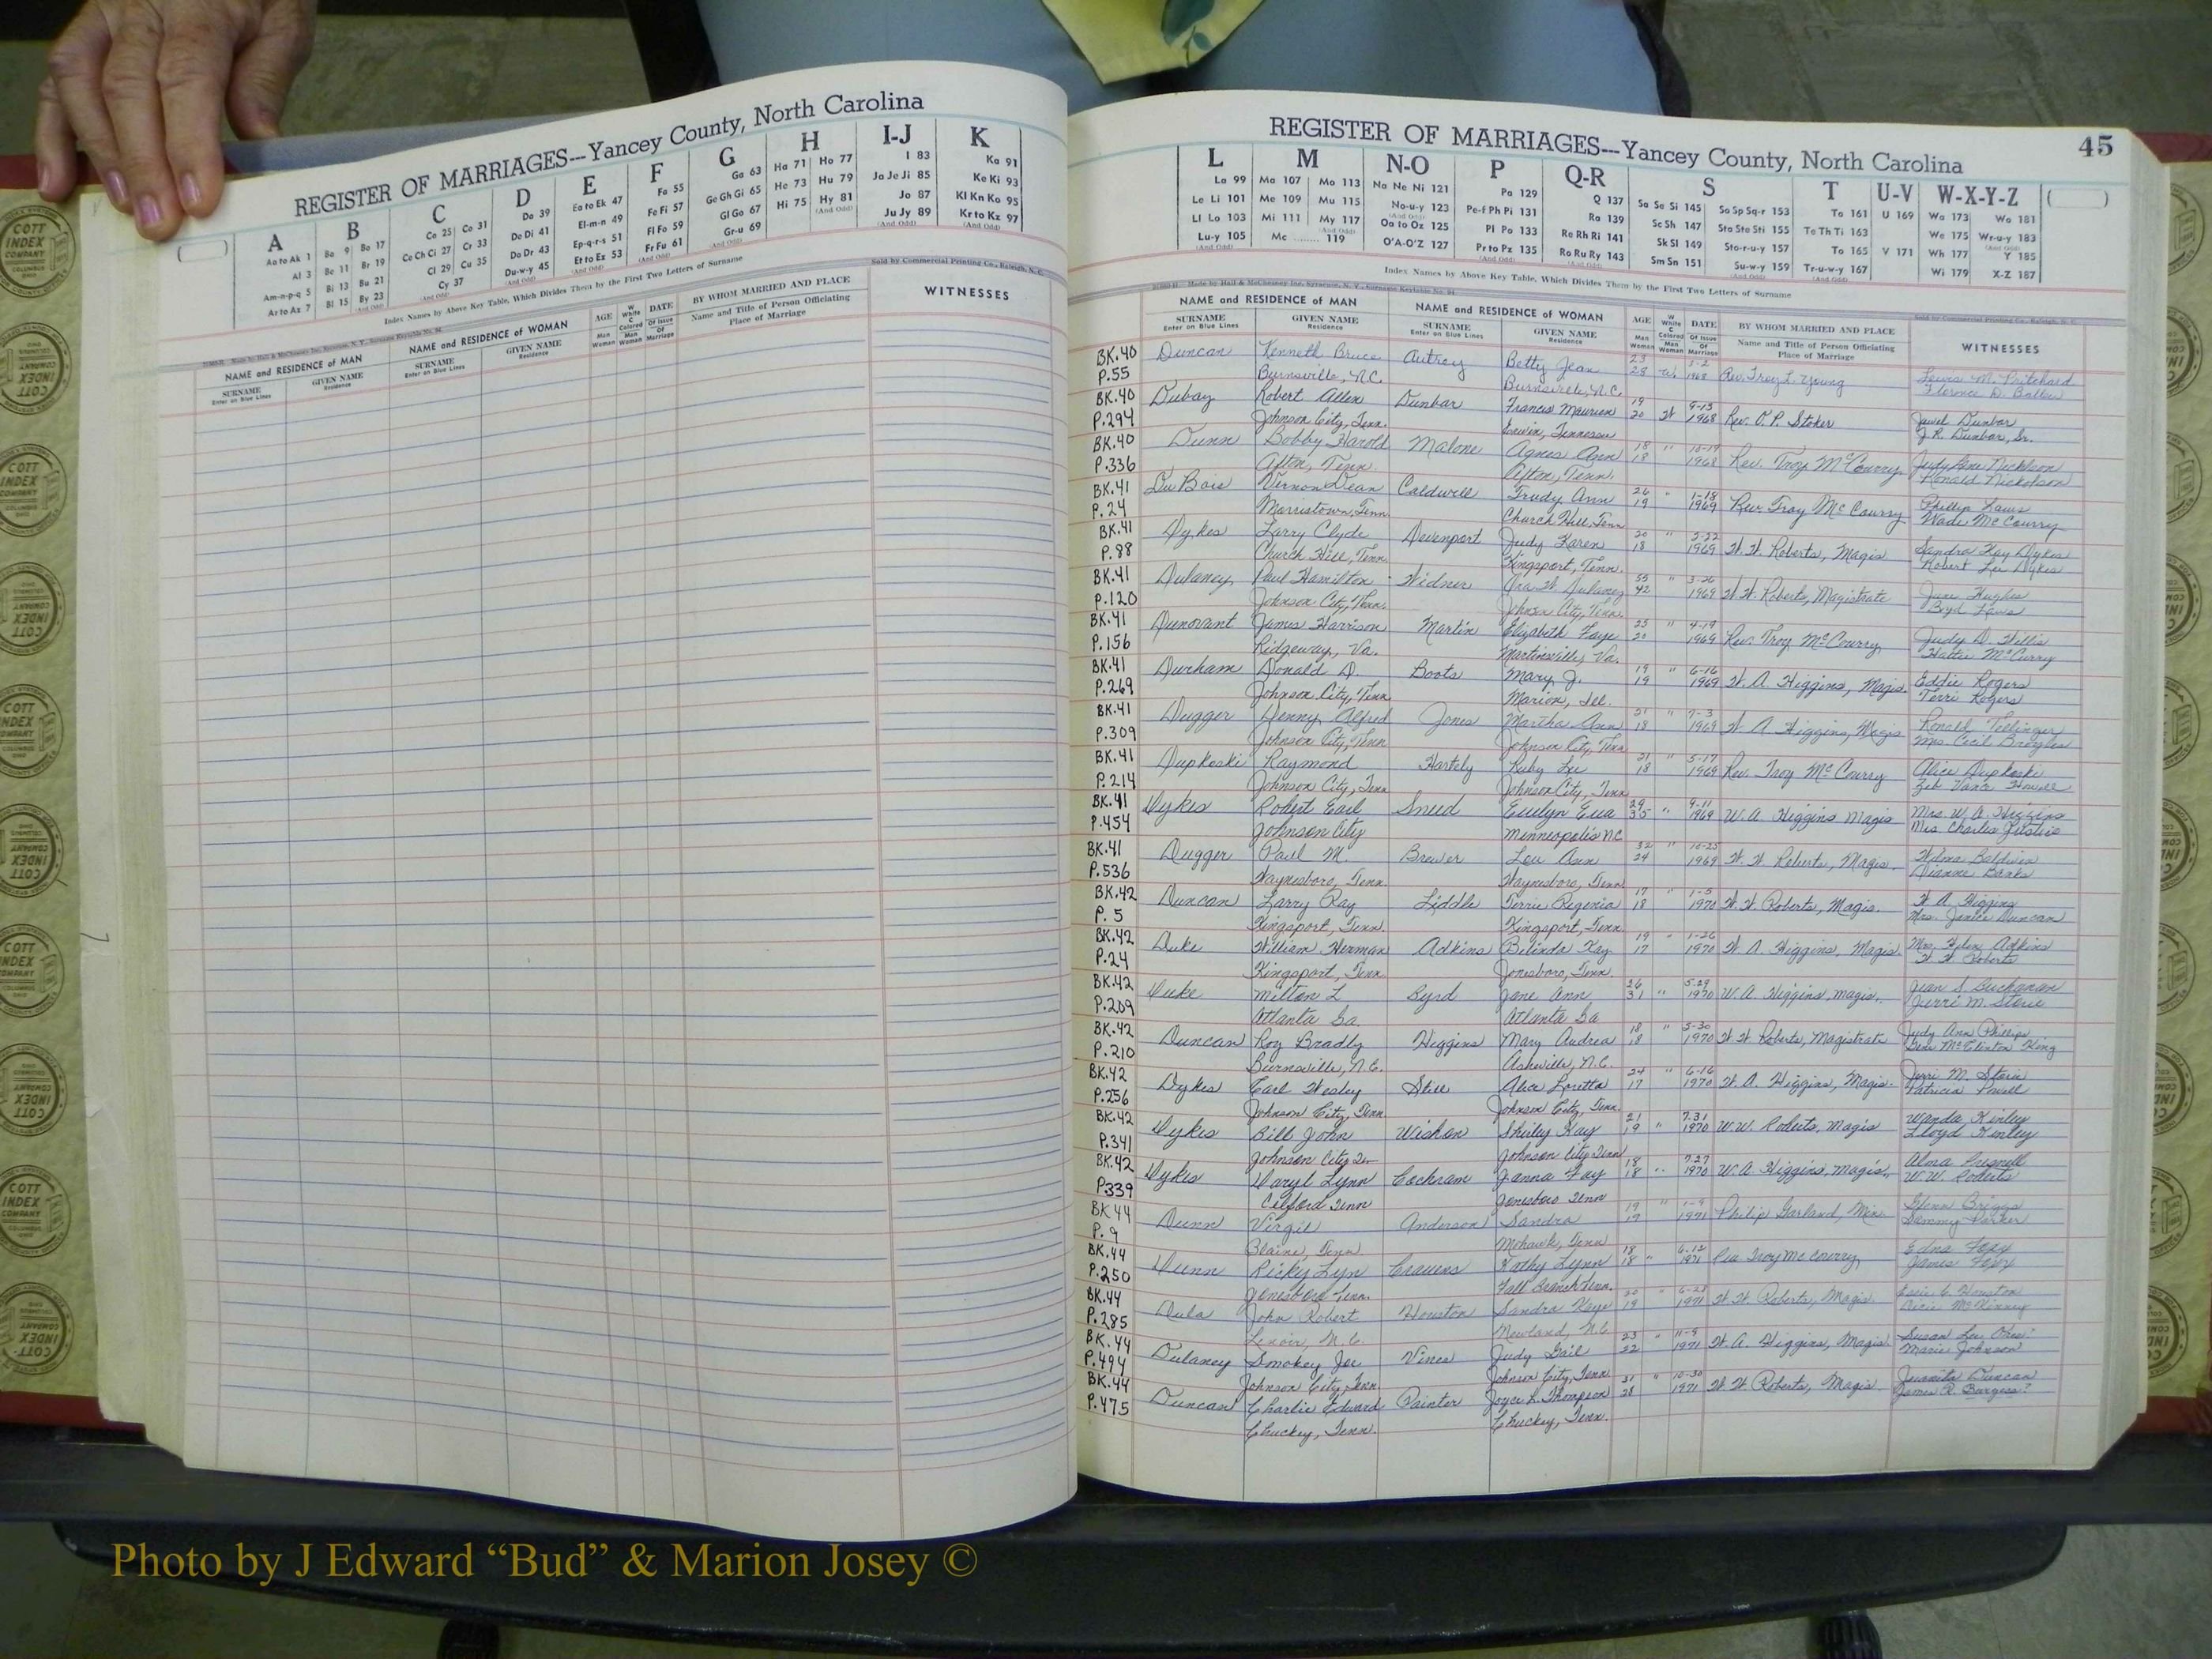 REGISTER OF MARRIAGES---Yancey County, North Carolina
A B C D E F G H I-J K
Aa to Ak 1
Al 3
Am-n-p-q 5
Ar to Az 7
Ba 9 Bo 17
Be 11 Br 19
Bi 13 Bu 21
Bl 15 By 23
Ca 25 Co 31
Ce Ch Ci 27 Cr 33
Cl 29 Cu 35
Cy 37
Da 39
De Di 41
Do Dr 43
Du-w-y 45
Ea to Ek 47
El-m-n 49
Ep-q-r-s 51
Et to Ez 53
Fa 55
Fe Fi 57
Fl Fo 59
Fr Fu 61
Ga 63
Ge Gh Gi 65
Gl Go 67
Gr-u 69
Ha 71 Ho 77
He 73 Hu 79
Hi 75 Hy 81
I 83
Ja Je Ji 85
Jo 87
Ju Jy 89
Ka 91
Ke Ki 93
Kl Kn Ko 95
Kr to Kz 97
Index Names by Above Key Table, Which Divides Them by the First Two Letters of Surname
Sold by Commercial Printing Co., Raleigh, N. C.
NAME and RESIDENCE of MAN
SURNAME Enter on Blue Lines
GIVEN NAME Residence
NAME and RESIDENCE of WOMAN
SURNAME Enter on Blue Lines
GIVEN NAME Residence
AGE Man Woman
W White C Colored Man Woman
DATE Of Issue Of Marriage
BY WHOM MARRIED AND PLACE
Name and Title of Person Officiating
Place of Marriage
WITNESSES
REGISTER OF MARRIAGES---Yancey County, North Carolina
45
L M N-O P Q-R S T U-V W-X-Y-Z
La 99
Le Li 101
Ll Lo 103
Lu-y 105
Ma 107 Mo 113
Me 109 Mu 115
Mi 111 My 117
Mc 119
Na Ne Ni 121
No-u-y 123
Oa to Oz 125
O'A-O'Z 127
Pa 129
Pe-f Ph Pi 131
Pl Po 133
Pr to Pz 135
Q 137
Ra 139
Re Rh Ri 141
Ro Ru Ry 143
Sa Se Si 145 So Sp Sq-r 153
Sc Sh 147 Sta Ste Sti 155
Sk Sl 149 Sto-r-u-y 157
Sm Sn 151 Su-w-y 159
Ta 161
Te Th Ti 163
To 165
Tr-u-w-y 167
U 169
V 171
Wa 173 Wo 181
We 175 Wr-u-y 183
Wh 177 Y 185
Wi 179 X-Z 187
Index Names by Above Key Table, Which Divides Them by the First Two Letters of Surname
NAME and RESIDENCE of MAN
SURNAME Enter on Blue Lines
GIVEN NAME Residence
NAME and RESIDENCE of WOMAN
SURNAME Enter on Blue Lines
GIVEN NAME Residence
AGE Man Woman
W White C Colored Man Woman
DATE Of Issue Of Marriage
BY WHOM MARRIED AND PLACE
Name and Title of Person Officiating
Place of Marriage
WITNESSES
BK.40 Duncan Kenneth Bruce Autrey Betty Jean 23 W. 5-2 Rev. Troy L. Young Lewis M. Pritchard
P.55 Burnsville, N.C. Burnsville, N.C. 28 1968 Florence D.
BK.40 Dubay Robert Allen Dunbar Francis Maurien 19 W 9-13 Rev. O.P. Stoker Jewel Dunbar
P.294 Johnson City, Tenn. Erwin, Tennessee 20 1968 J.R. Dunbar, Sr.
BK.40 Dunn Bobby Harold Malone Agnes Ann 18 " 10-19 Rev. Troy McCourry Judy Nickolson
P.336 Afton, Tenn. Afton, Tenn. 18 1968 Ronald Nickolson
BK.41 DuBois Vernon Dean Caldwell Trudy Ann 26 " 1-18 Rev. Troy McCourry Phillip Laws
P.24 Morristown, Tenn. Church Hill, Tenn 19 1969 Wade McCourry
BK.41 Dykes Larry Clyde Devenport Judy Karen 20 " W.W. Roberts, Magis. Sandra Kay Dykes
P.88 Church Hill, Tenn. Kingsport, Tenn. 18 1969 Robert Lee Dykes
BK.41 Dulaney Paul Hamilton Widner Ora W. Dulaney 55 " 3-26 W.W. Roberts, Magistrate Jane Hughes
P.120 Johnson City, Tenn. Johnson City, Tenn. 42 1969 Boyd Laws
BK.41 Dunovant James Harrison Martin Elizabeth Faye 23 " 4-19 Rev. Troy McCourry Judy D. Willis
P.156 Ridgeway, Va. Martinsville, Va. 20 1969 Hattie McCurry
BK.41 Durham Donald D. Boots Mary J. 19 " 6-16 W.A. Higgins, Magis. Eddie Rogers
P.269 Johnson City, Tenn Marion, Ill. 19 1969 Terri Rogers
BK.41 Dugger Denny Alfred Jones Martha Ann 21 " 7-3 W.A. Higgins, Magis Ronald
P.309 Johnson City, Tenn Johnson City, Tenn 18 1969 Mrs. Cecil Broyles
BK.41 Dupkoski Raymond Hartely Ruby Lee 21 " 5-17 Rev. Troy McCourry Alice Dupkoski
P.214 Johnson City, Tenn Johnson City, Tenn 18 1969 Zeb Vance Howell
BK.41 Dykes Robert Earl Sneed Evelyn Eva 29 " 9-11 W.A. Higgins Magis Mrs. W.A. Higgins
P.454 Johnson City Minneapolis NC 35 1969 Mrs Charles
BK.41 Dugger Paul M. Brewer Lou Ann 32 " 10-25 W.W. Roberts, Magis. Wilma Baldwin
P.536 Waynesboro, Tenn. Waynesboro, Tenn 24 1969 Dianne Banks
BK.42 Duncan Larry Ray Liddle Terrie Regenia 17 " 1-5 W.W. Roberts, Magis. W.A. Higgins
P.5 Kingsport, Tenn. Kingsport, Tenn. 18 1970 Mrs. Janice Duncan
BK.42 Duke William Herman Adkins Belinda Kay 19 " 1-26 W.A. Higgins, Magis. Mrs. Helen Adkins
P.24 Kingsport, Tenn. Jonesboro, Tenn. 17 1970 W.W. Roberts
BK.42 Duke Milton L Byrd Jane Ann 26 " 5-29 W.A. Higgins, magis. Jean S. Buchanan
P.209 Atlanta Ga. Atlanta Ga 31 1970 Jerri M. Storie
BK.42 Duncan Roy Bradly Higgins Mary Audrea 18 " 5-30 W.W. Roberts, Magistrate Judy Ann Phillips
P.210 Burnsville, N.C. Asheville, N.C. 18 1970 McClinton King
BK.42 Dykes Earl Wesley Stell Alice Loretta 24 " 6-16 W.A. Higgins, Magis. Jerri M. Storie
P.256 Johnson City, Tenn. Johnson City, Tenn. 17 1970 Patricia Powell
BK.42 Dykes Bill John Wishon Shirley Kay 21 " 7-31 W.W. Roberts, Magis Wanda Kinley
P.341 Johnson City Johnson City Tenn 19 1970 Lloyd Kinley
BK.42 Dykes Daryl Lynn Cockram Janna Fay 18 " 7-27 W.A. Higgins, Magis. Alma Presnell
P.339 Tenn Jonesboro Tenn 18 1970 W.W. Roberts
BK 44 Dunn Virgil Anderson Sandra 19 " 1-9 Philip Garland, Min. Glenn Briggs
P.9 Blaine, Tenn. Mohawk, Tenn 19 1971 Sammy Parker
BK.44 Dunn Ricky Lyn Cravens Kathy Lynn 18 " 6-12 Rev Troy McCourry Edna Foxx
P.250 Jonesboro Tenn. Fall Branch Tenn. 18 1971 James Foxx
BK.44 Dula John Robert Houston Sandra Kaye 20 " W.W. Roberts, Magis. Houston
P.285 Lenoir, N.C. Newland, N.C. 19 1971 McKinney
BK.44 Dulaney Smokey Joe Vines Judy Gail 23 " 11-9 W.A. Higgins, Magis. Susan Lee
P.494 Johnson City, Tenn Johnson City, Tenn 22 1971 Marie Johnson
BK.44 Duncan Charlie Edward Painter Joyce L. Thompson 31 " 10-30 W.W. Roberts, Magis. Juanita Duncan
P.475 Chuckey, Tenn. Chuckey, Tenn. 28 1971 James R. Burgess
COTT INDEX COMPANY
Photo by J Edward “Bud” & Marion Josey ©